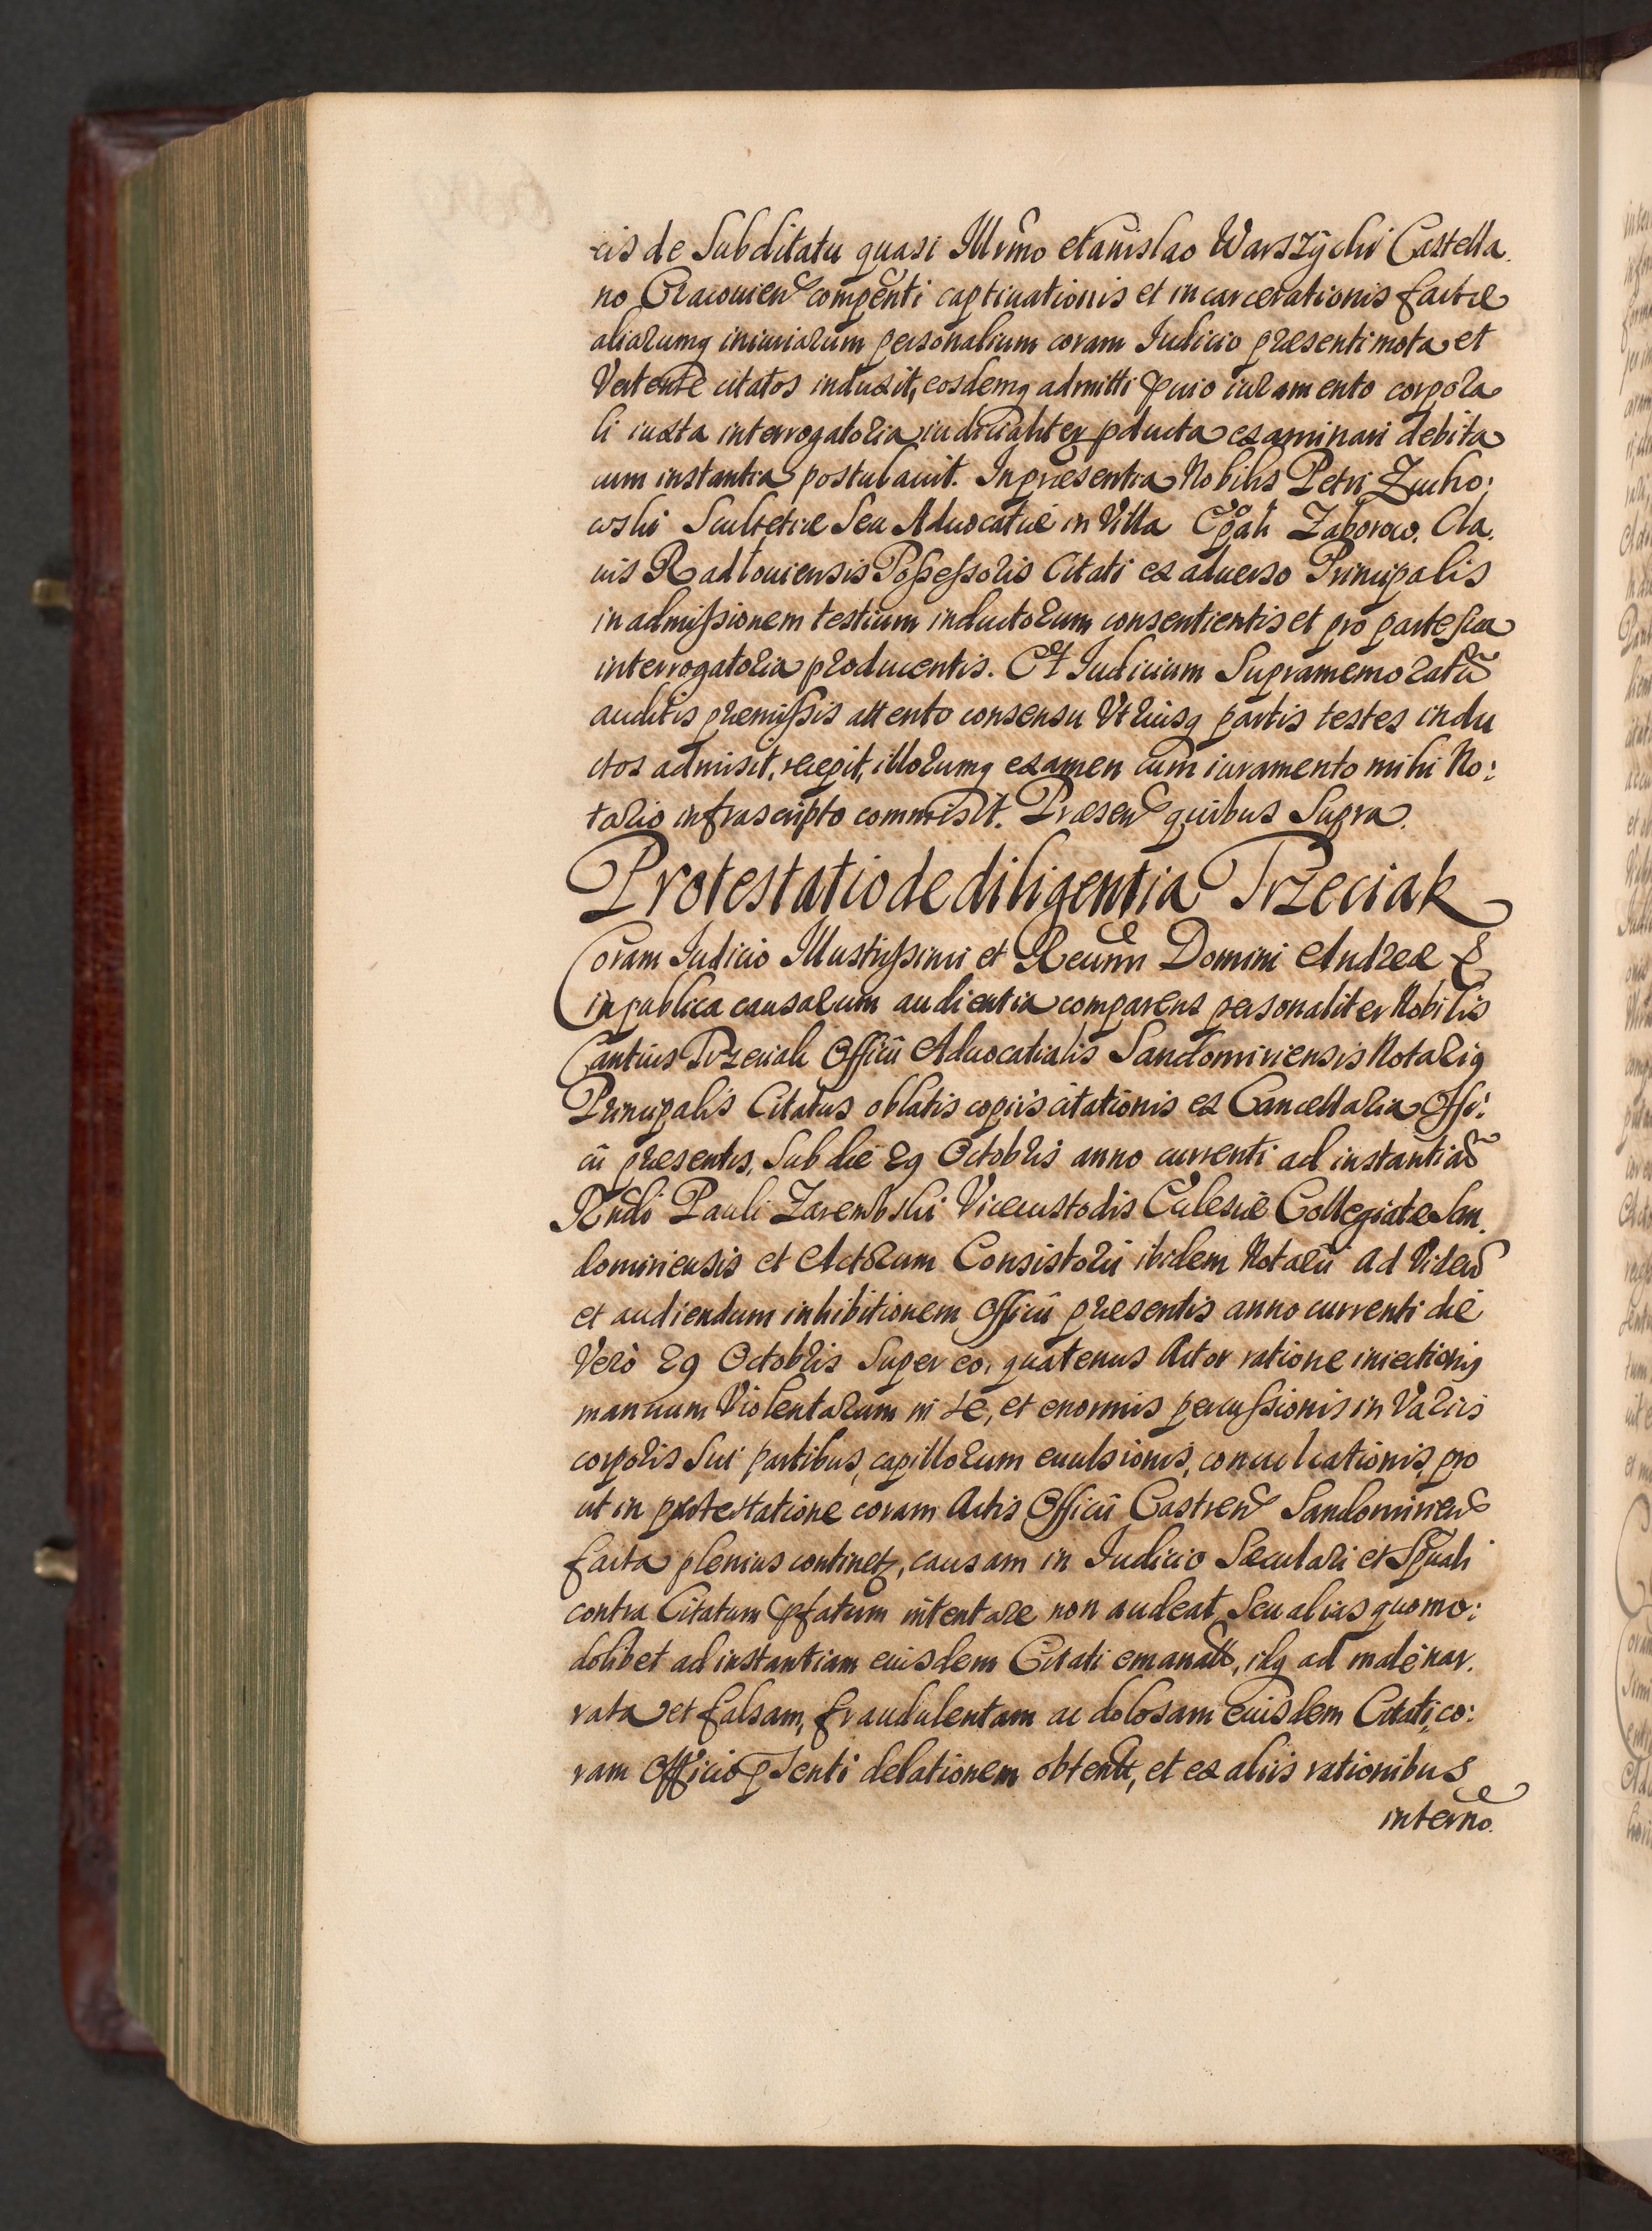 cis de Subditatu quasi Illrmo Stanislao Warszÿcki Castella.
no Cracouien compenti captiuationis et incarcerationis factæ
aliarumq iniuriarum personalium coram Iudicio præsenti mota et
Vertente citatos induxit, eosdemq admitti ꝑuio iuramento corpora
li iuxta interrogatoria iudicialiter pducta examinari debita
cum instantia postulauit. In præsentia Nobilis Petri Zucho:
wski Scultetiæ Seu Aduocatiæ in Villa Epali Zaborow. Cla.
uis Radłouiensis Possessoris Citati ex aduerso Principalis
in admissionem testium inductorum consentientis et pro parte sua
interrogatoria producentis. Et Iudicium Supramemoratũ
auditis præmissis attento consensu Vtriusq partis testes indu
ctos admisit, recepit, illorumq examen cum iuramento mihi No:
tario infrascripto commisit. Præsen quibus Supra.
Protestatio de diligentia Trzeciak
Coram Iudicio Illustrissimi et Reuñn Domini Andreæ &
in publica causarum audientia comparens personaliter Nobilis
Cantius Trzeciak Officii Aduocatialis Sandomiriensis Notariq
Principalis Citatus oblatis copiis citationis ex Cancellaria Offi:
cii præsentis, Sub die 29 Octobris anno currenti ad instantiã
Rndi Pauli Zarembski Vicecustodis Eclesiæ Collegiatæ San.
domiriensis et Actorum Consistorii ibidem Notarii Ad Viden
et audiendum inhibitionem Officii præsentis anno currenti die
Verò 29 Octobris Super eo, quatenus Actor ratione iniectionis
manuum Violentarum in se, et enormis percussionis in Variis
corporis Sui partibus, capillorum euulsionis, conculcationis, pro
ut in protestatione coram Actis Officii Castren Sandomirien
facta plenius continetꝛ, causam in Iudicio Sæculari et Spuali
contra Citatum ꝑfatum intentare non audeat, Seu alias quomo:
dolibet ad instantiam eiusdem Citati emanatt, idq ad malè nar.
rata et falsam, fraudulentam ac dolosam eiusdem Citati, co:
ram Officio pSenti delationem obtentt, et ex aliis rationibus
interno.